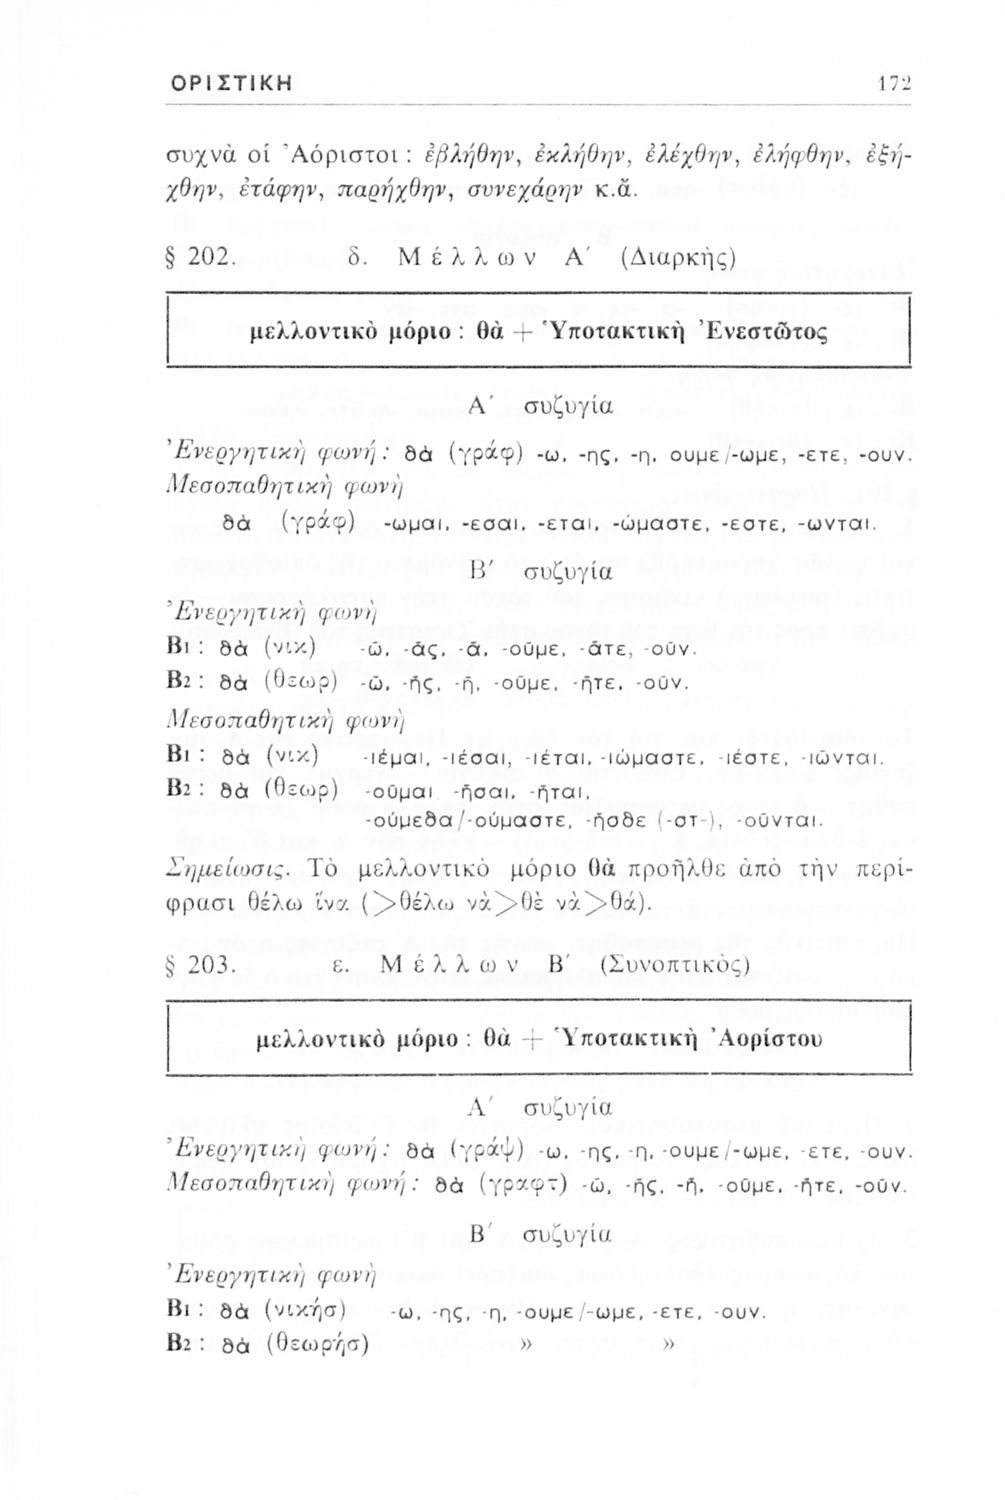 ΟΡΙΣΤΙΚΗ 172
συχνὰ οἱ Ἀόριστοι : ἐβλήθην, ἐκλήθην, ἐλέχθην, ἐλήφθην, ἐξή-
χθην, ἐτάφην, παρήχθην, συνεχάρην κ.ἄ.
§ 202. δ. Μέλλων Α΄ (Διαρκὴς)
μελλοντικὸ μόριο : θὰ + Ὑποτακτικὴ Ἐνεστῶτος
Α΄ συζυγία
Ἐνεργητικὴ φωνή : θὰ (γράφ) -ω, -ης, -η, ουμε/-ωμε, -ετε, -ουν.
Μεσοπαθητικὴ φωνὴ
θὰ (γράφ) -ωμαι, -εσαι, -εται, -ώμαστε, -εστε, -ωνται.
Β΄ συζυγία
Ἐνεργητικὴ φωνὴ
Β1 : θὰ (νικ) -ῶ, -ᾶς, -ᾶ, -οῦμε, -ᾶτε, -οῦν.
Β2 : θὰ (θεωρ) -ῶ, -ῆς, -ῆ, -οῦμε, -ῆτε, -οῦν.
Μεσοπαθητικὴ φωνὴ
Β1 : θὰ (νικ) -ιέμαι, -ιέσαι, -ιέται, -ιώμαστε, -ιέστε, -ιῶνται.
Β2 : θὰ (θεωρ) -οῦμαι, -ῆσαι, -ῆται,
-ούμεθα/-ούμαστε, -ῆσθε (-στ-), -οῦνται.
Σημείωσις. Τὸ μελλοντικὸ μόριο θὰ προῆλθε ἀπὸ τὴν περί-
φρασι θέλω ἵνα (>θέλω νὰ>θὲ νὰ>θά).
§ 203. ε. Μέλλων Β΄ (Συνοπτικὸς)
μελλοντικὸ μόριο : θὰ + Ὑποτακτικὴ Ἀορίστου
Α΄ συζυγία
Ἐνεργητικὴ φωνή : θὰ (γράψ) -ω, -ης, -η, -ουμε/-ωμε, -ετε, -ουν.
Μεσοπαθητικὴ φωνή : θὰ (γραφτ) -ῶ, -ῆς, -ῆ, -οῦμε, -ῆτε, -οῦν.
Β΄ συζυγία
Ἐνεργητικὴ φωνὴ
Β1 : θὰ (νικήσ) -ω, -ης, -η, -ουμε/-ωμε, -ετε, -ουν.
Β2 : θὰ (θεωρήσ) » »